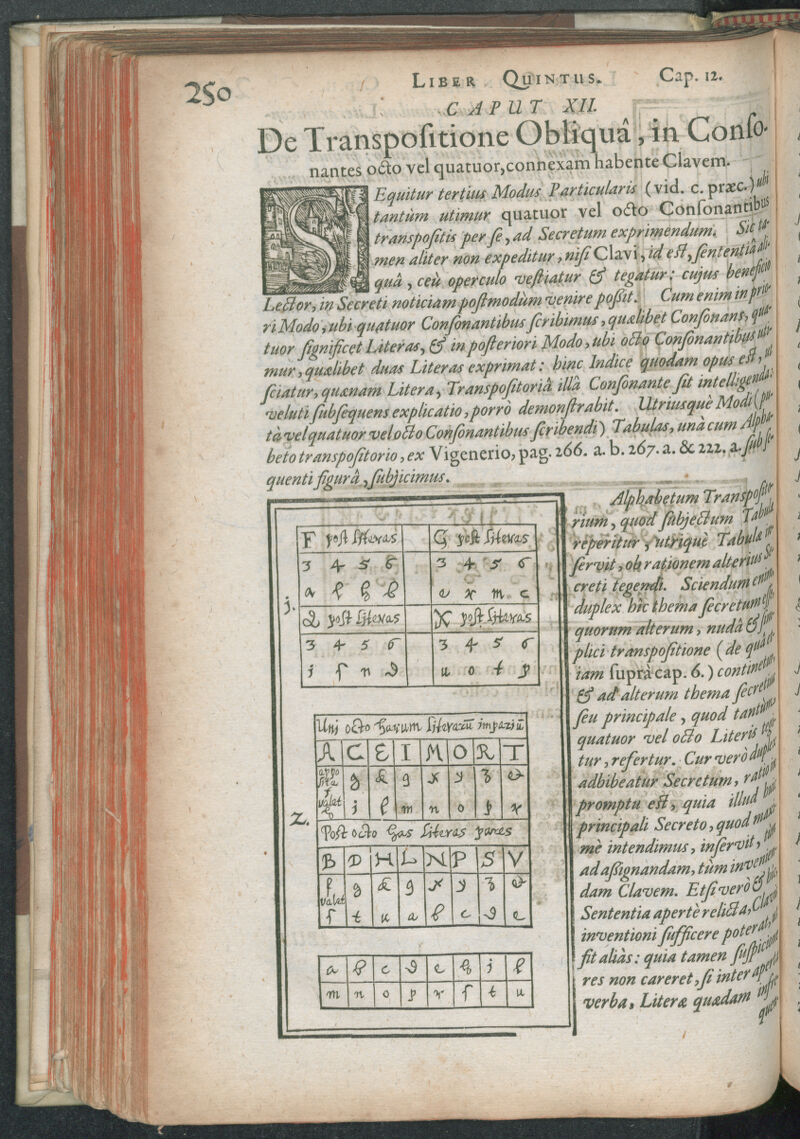 250
LIBER QUINTUS. Cap. 12.
CAPUT XII.
De Transpositione Obliquâ, in Conso-
nantes octo vel quatuor, connexam habente Clavem.
SEquitur tertius Modus Particularis (vid. c. præc.) ubi
tantùm utimur quatuor vel octo Consonantibus
transpositis per se, ad Secretum exprimendum. Sic ta-
men aliter non expeditur, nisi Clavi, id est, sententiâ ali-
quâ, ceù operculo vestiatur & tegatur: cujus beneficio
Lector, in Secreti noticiam postmodùm venire possit. Cum enim in prio-
ri Modo, ubi quatuor Consonantibus scribimus, quælibet Consonans, qua-
tuor significet Literas, & in posteriori Modo, ubi octo Consonantibus uti-
mur, quælibet duas Literas exprimat: hinc Indice quodam opus est, ut
sciatur, quænam Litera, Transpositoriâ illâ Consonante sit intelligenda:
veluti subsequens explicatio, porrò demonstrabit. Utriusquè Modi (pu-
tà vel quatuor vel octo Consonantibus scribendi) Tabulas, unà cum Alpha-
beto transpositorio, ex Vigenerio, pag. 266. a. b. 267. a. & 222. a. subse-
quenti figurâ, subjicimus.
Alphabetum Transposito-
rium, quod subjectum Tabulæ
reperitur, utriquè Tabulæ in-
servit, ob rationem alterius Se-
creti tegendi. Sciendum enim
duplex hîc thema secretum esse,
quorum alterum, nudâ & sim-
plici transpositione (de quâ et-
iam suprà cap. 6.) continetur,
& ad alterum thema secretius
seu principale, quod tantùm
quatuor vel octo Literis tegi-
tur, refertur. Cur verò duplex
adhibeatur Secretum, ratio in
promptu est, quia illud huic
principali Secreto, quod maxi-
mè intendimus, inservit, tùm
ad assignandam, tùm invenien-
dam Clavem. Etsi verò &
Sententia apertè relicta, Clavis
inventioni sufficere poterat,
sit aliàs: quia tamen suspicione
res non careret, si inter aperta
verba, Literæ quædam
1.
F post literas G post literas
3 4 5 6 3 4 5 6
a f h b e r m c
D post literas X post literas
3 4 5 6 3 4 5 6
i s n d u o t p
2.
Uni octo harum literarū impariū
A C E I M O R T
g & 9 x y z &
valet i l m n o p r
Post octo has literas pares
B D H L N P S V
g & 9 x y z &
valet s t u a b c d e
a b c d e h i l
m n o p r s t u